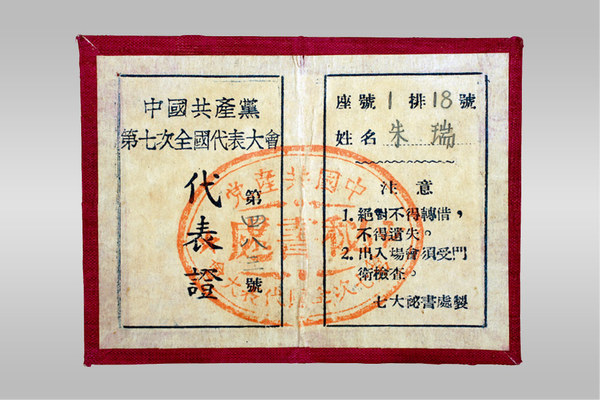 中國共產黨
第七次全國代表大會
代表證
第四八三號
座號1排18號
姓名 朱瑞
注意
1. 絕對不得轉借，
不得遺失。
2. 出入場會須受門
衛檢查。
七大祕書處製
中国共産党
祕書處